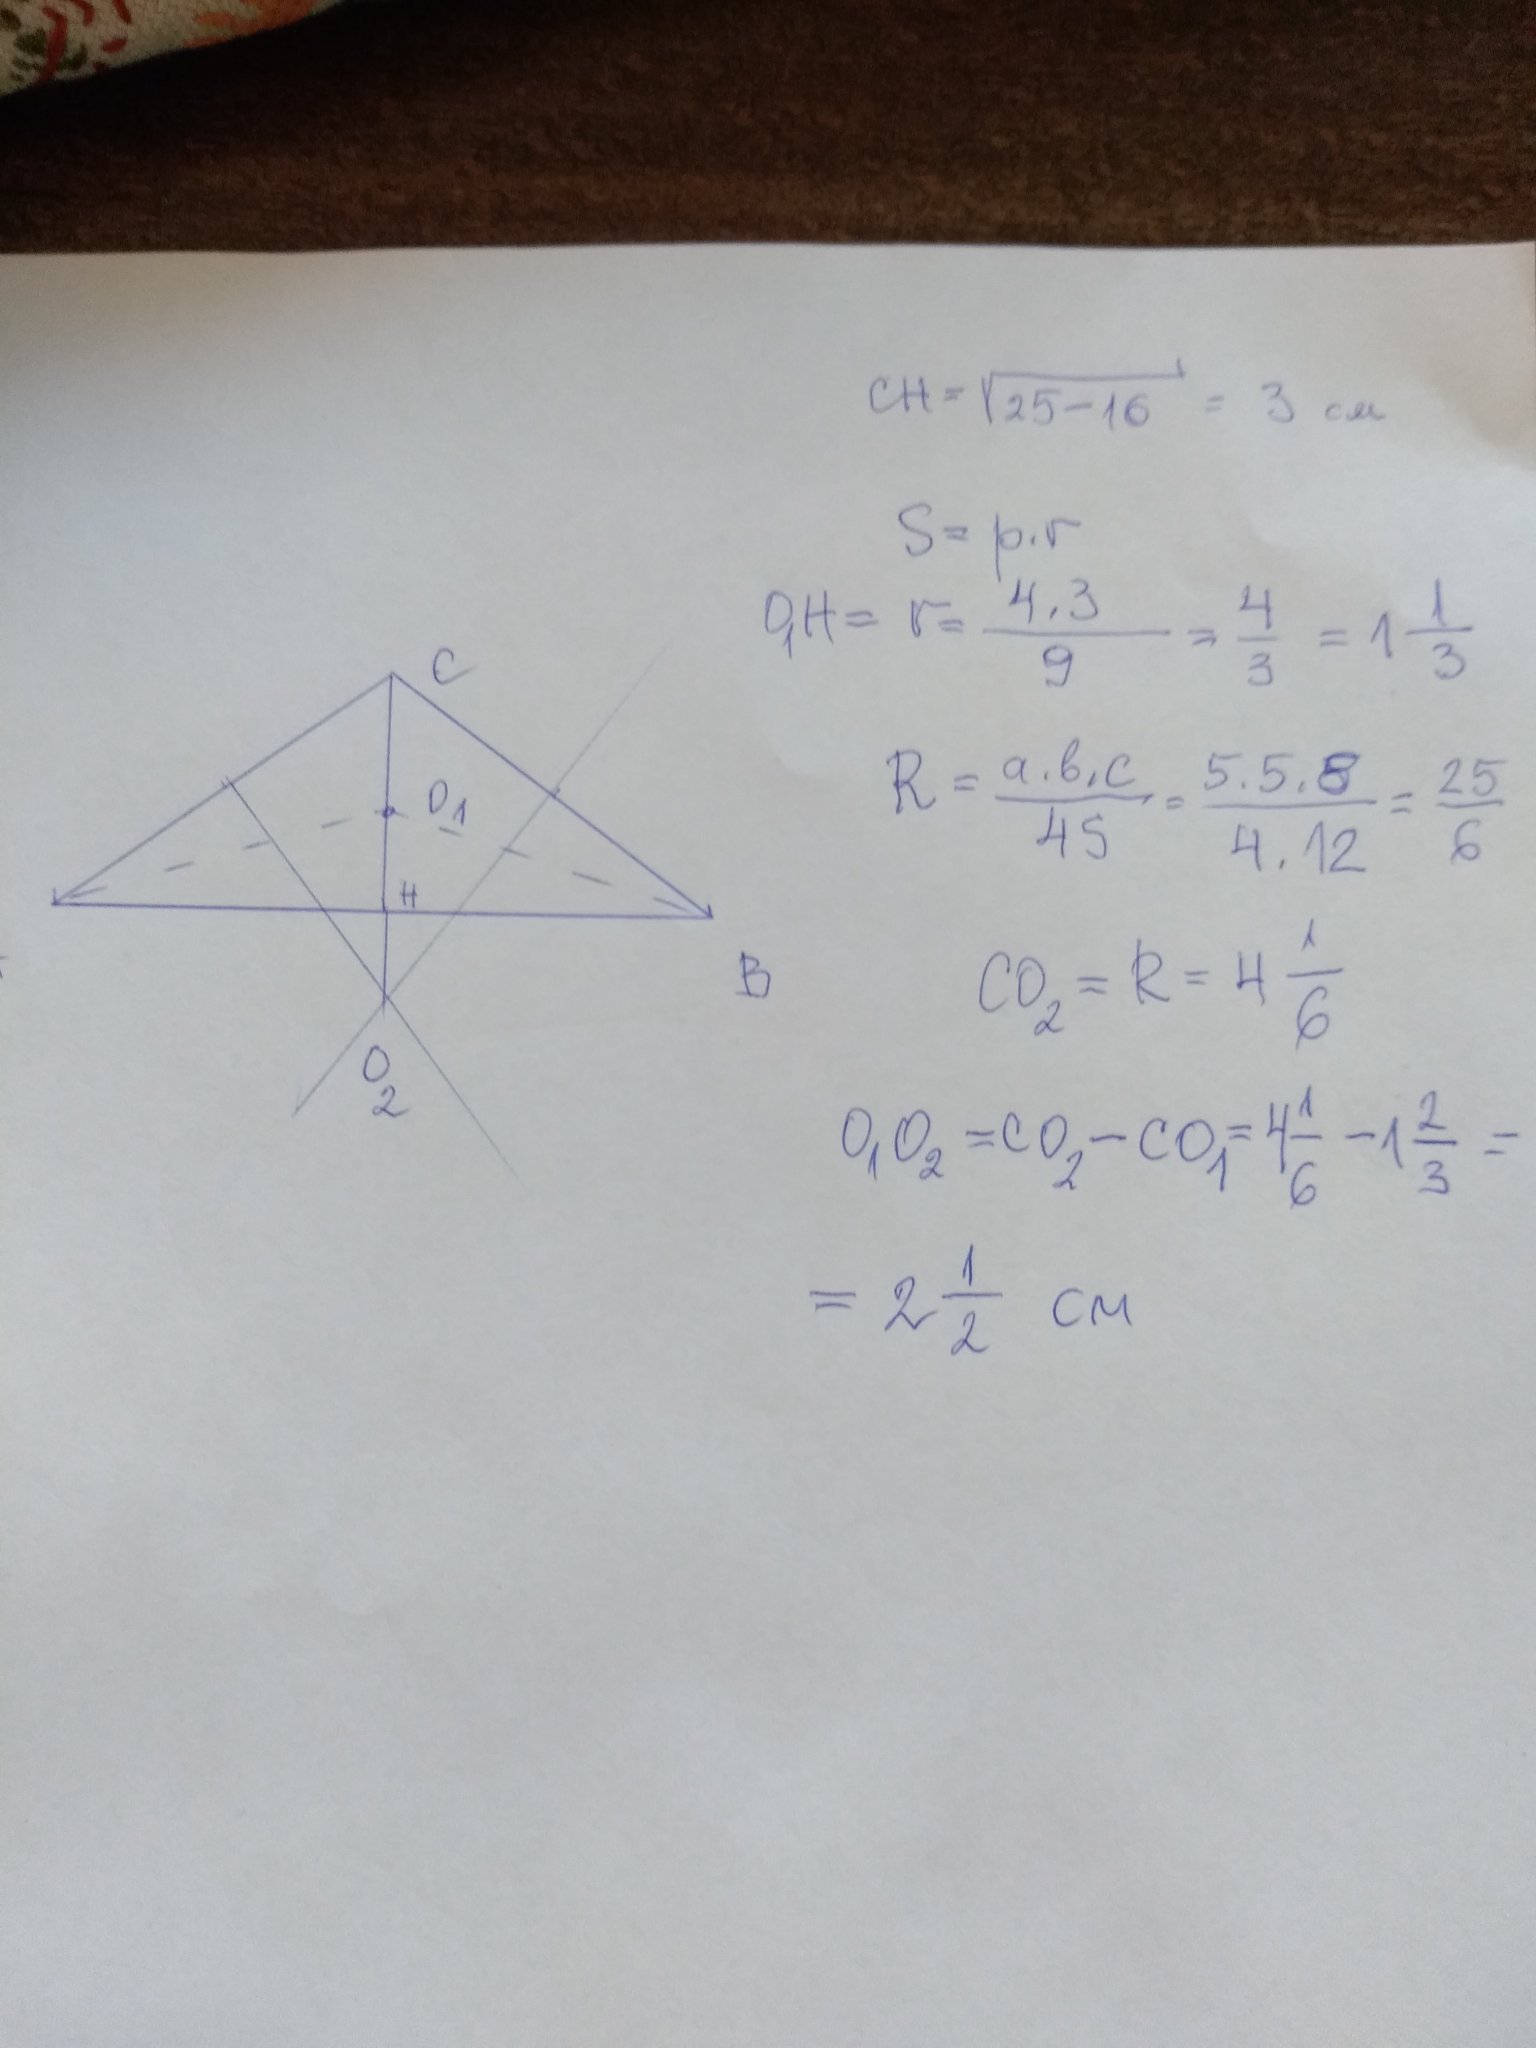 CH = √25-16 = 3 см
S = p.r
O₁H = r = 4.3/9 = 4/3 = 1 1/3
R = a.b.c/4S = 5.5.8/4.12 = 25/6
CO₂ = R = 4 1/6
O₁O₂ = CO₂ - CO₁ = 4 1/6 - 1 2/3 =
= 2 1/2 см
C
O₁
H
B
O₂